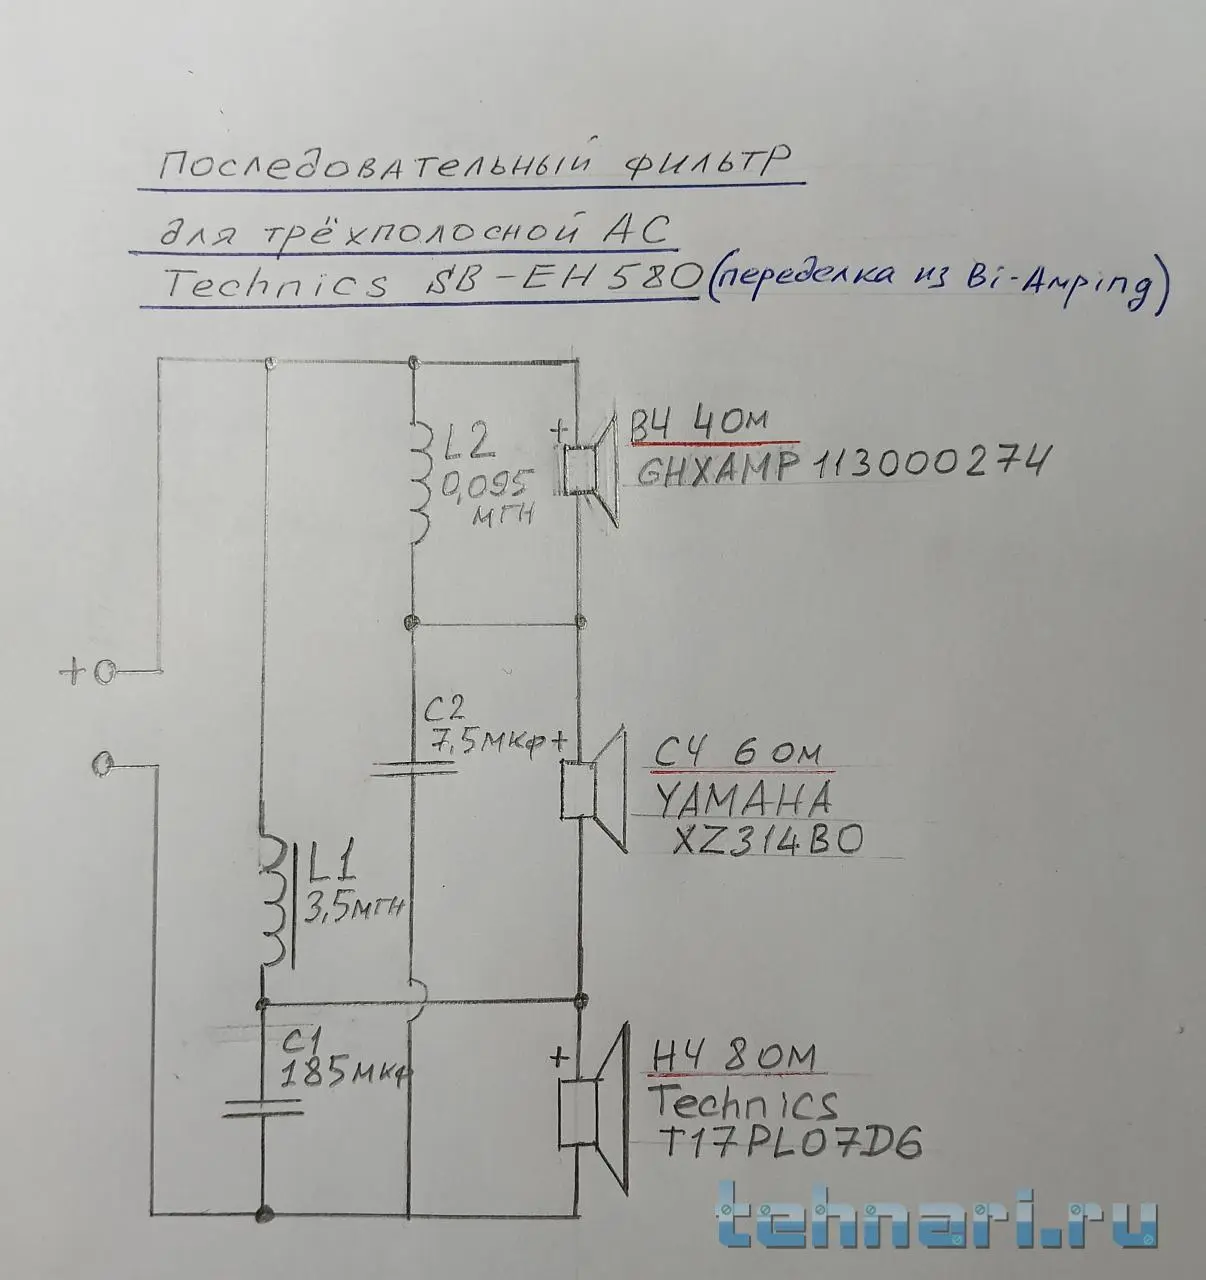 Последовательный фильтр
для трёхполосной АС
Technics SB-EH580 (переделка из Bi-Amping)
+ ВЧ 4 Ом
L2 GHXAMP 113000274
0,095
мГн
+
С2
7,5мкф + СЧ 6 Ом
YAMAHA
XZ314B0
L1
3,5мГн
С1 + НЧ 8 Ом
185мкф
Technics
T17PL07D6
tehnari.ru